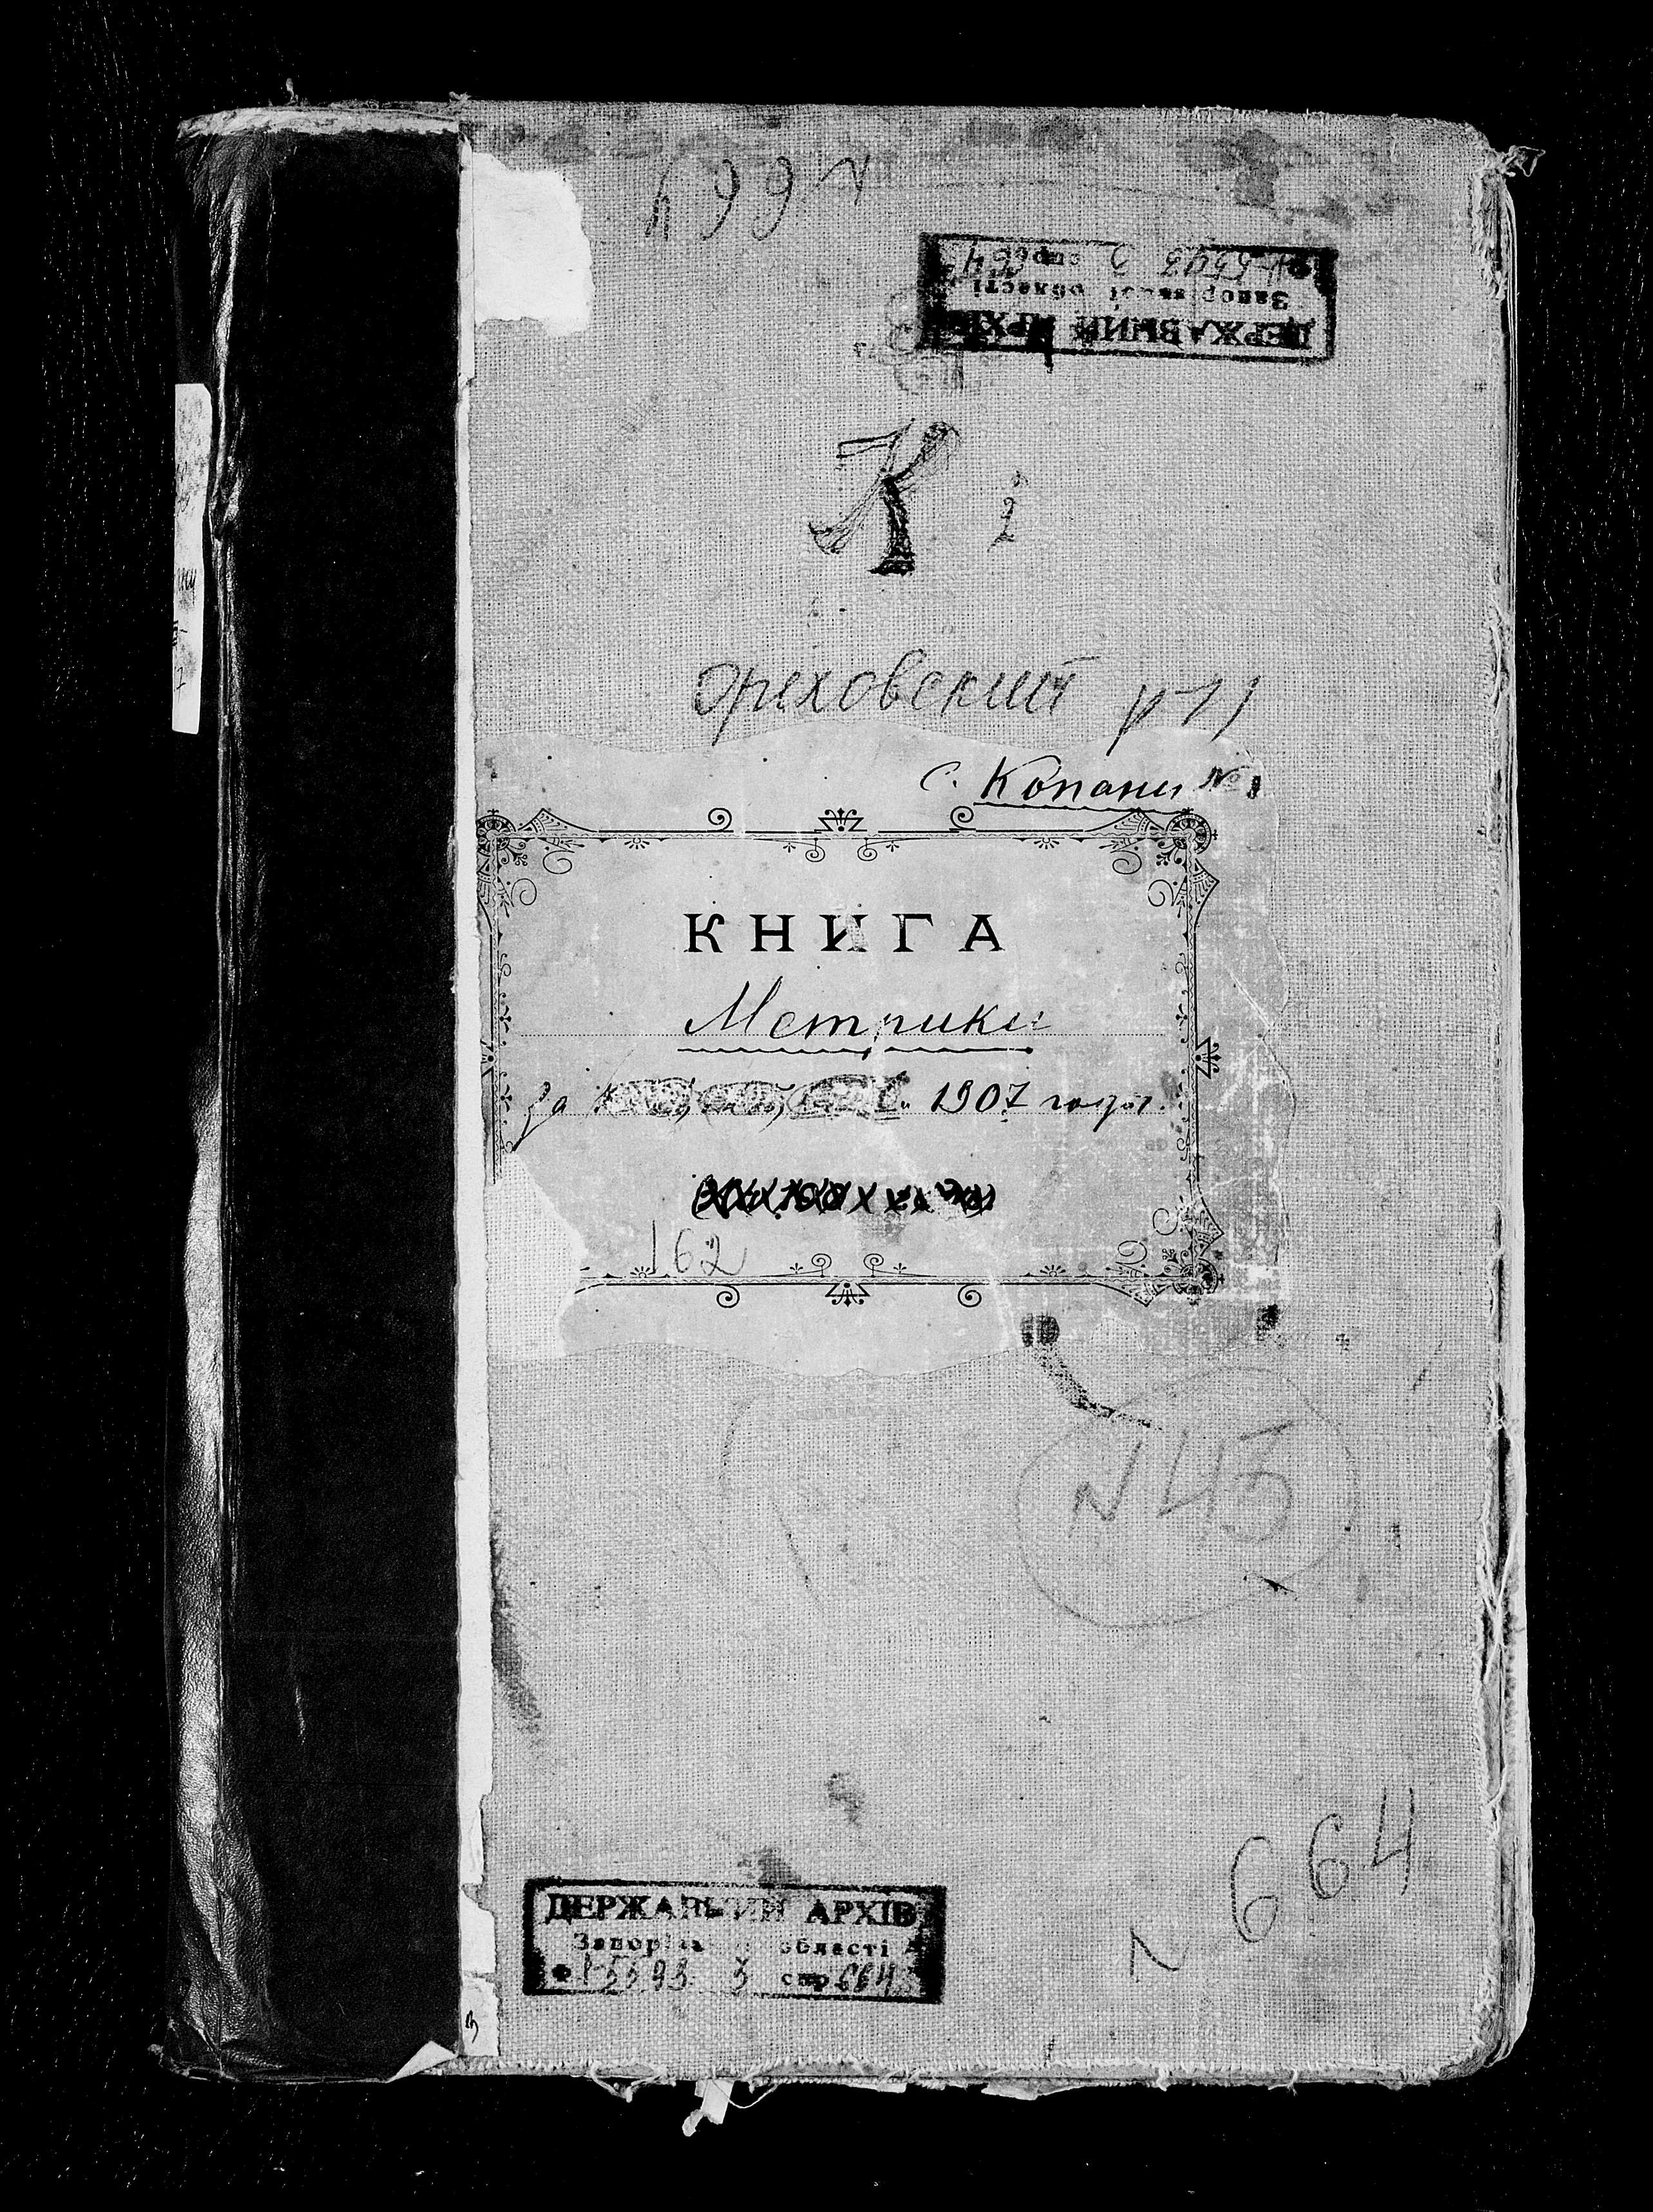 N 664
ДЕРЖАВНИЙ АРХІВ
Запорізької області
спр 664
К 2
Ореховский р-н
с. Копани №1
КНИГА
Метрики
За 1907 годы.
162
N 43
N 664
ДЕРЖАВНИЙ АРХІВ
Запорізької області
Ф Р-5593 3 спр 664